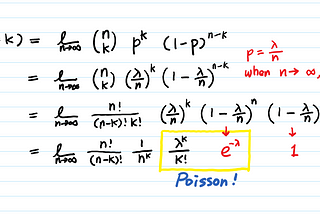 k) = lim n→∞ (n k) p^k (1-p)^{n-k} p = λ/n
= lim n→∞ (n k) (λ/n)^k (1 - λ/n)^{n-k} when n → ∞,
= lim n→∞ n!/((n-k)! k!) (λ/n)^k (1 - λ/n)^n (1 - λ/n)
= lim n→∞ n!/(n-k)! 1/n^k λ^k/k! e^{-λ} 1
Poisson!